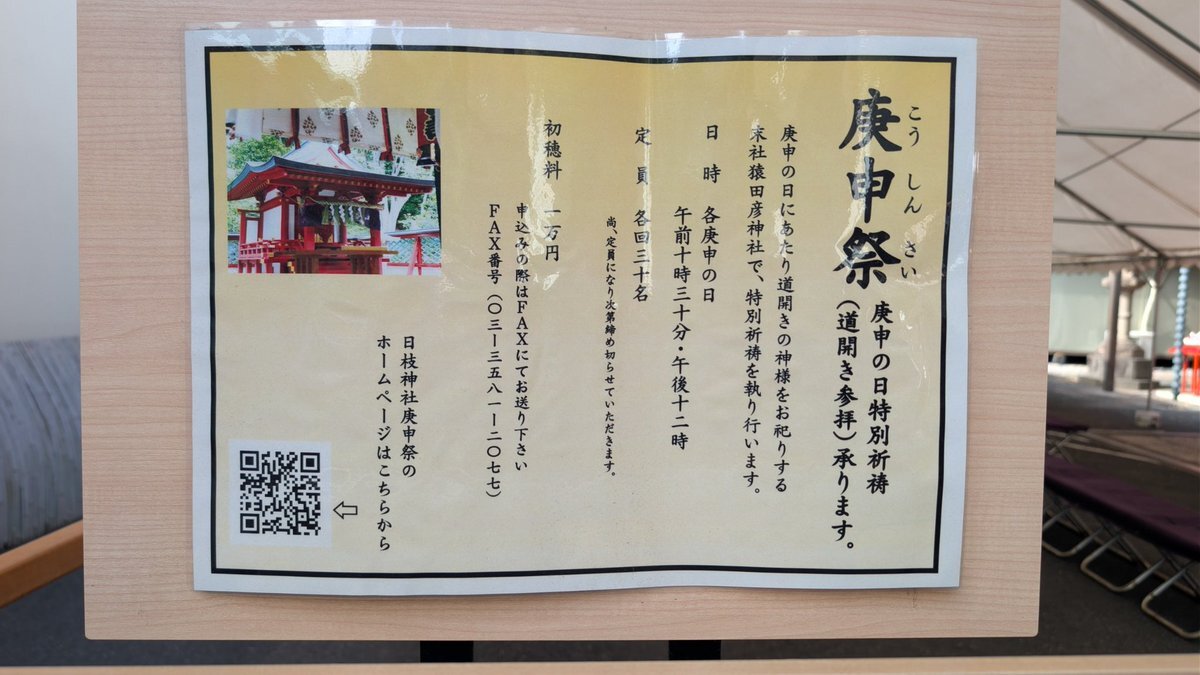 こうしんさい
庚申祭
庚申の日特別祈祷
(道開き参拝)承ります。
庚申の日にあたり道開きの神様をお祀りする
末社猿田彦神社で、特別祈祷を執り行います。
日時 各庚申の日
午前十時三十分・午後十二時
定員 各回三十名
尚、定員になり次第締め切らせていただきます。
初穂料 一万円
申込みの際はFAXにてお送り下さい
FAX番号(〇三ー三五八一ー二〇七七)
日枝神社庚申祭の
ホームページはこちらから